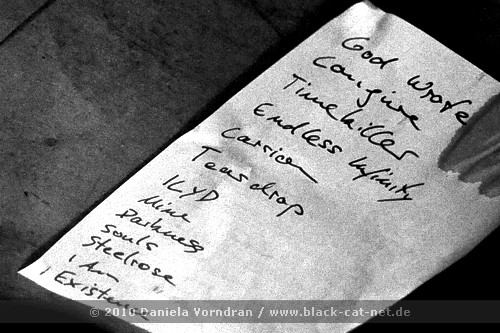 God Wrote
Conjure
Timekiller
Endless Infinity
Carrion
Teardrop
ILYD
Mine
Darkness
Souls
Steelrose
I Am
"Existence"
© 2010 Daniela Vorndran / www.black-cat-net.de